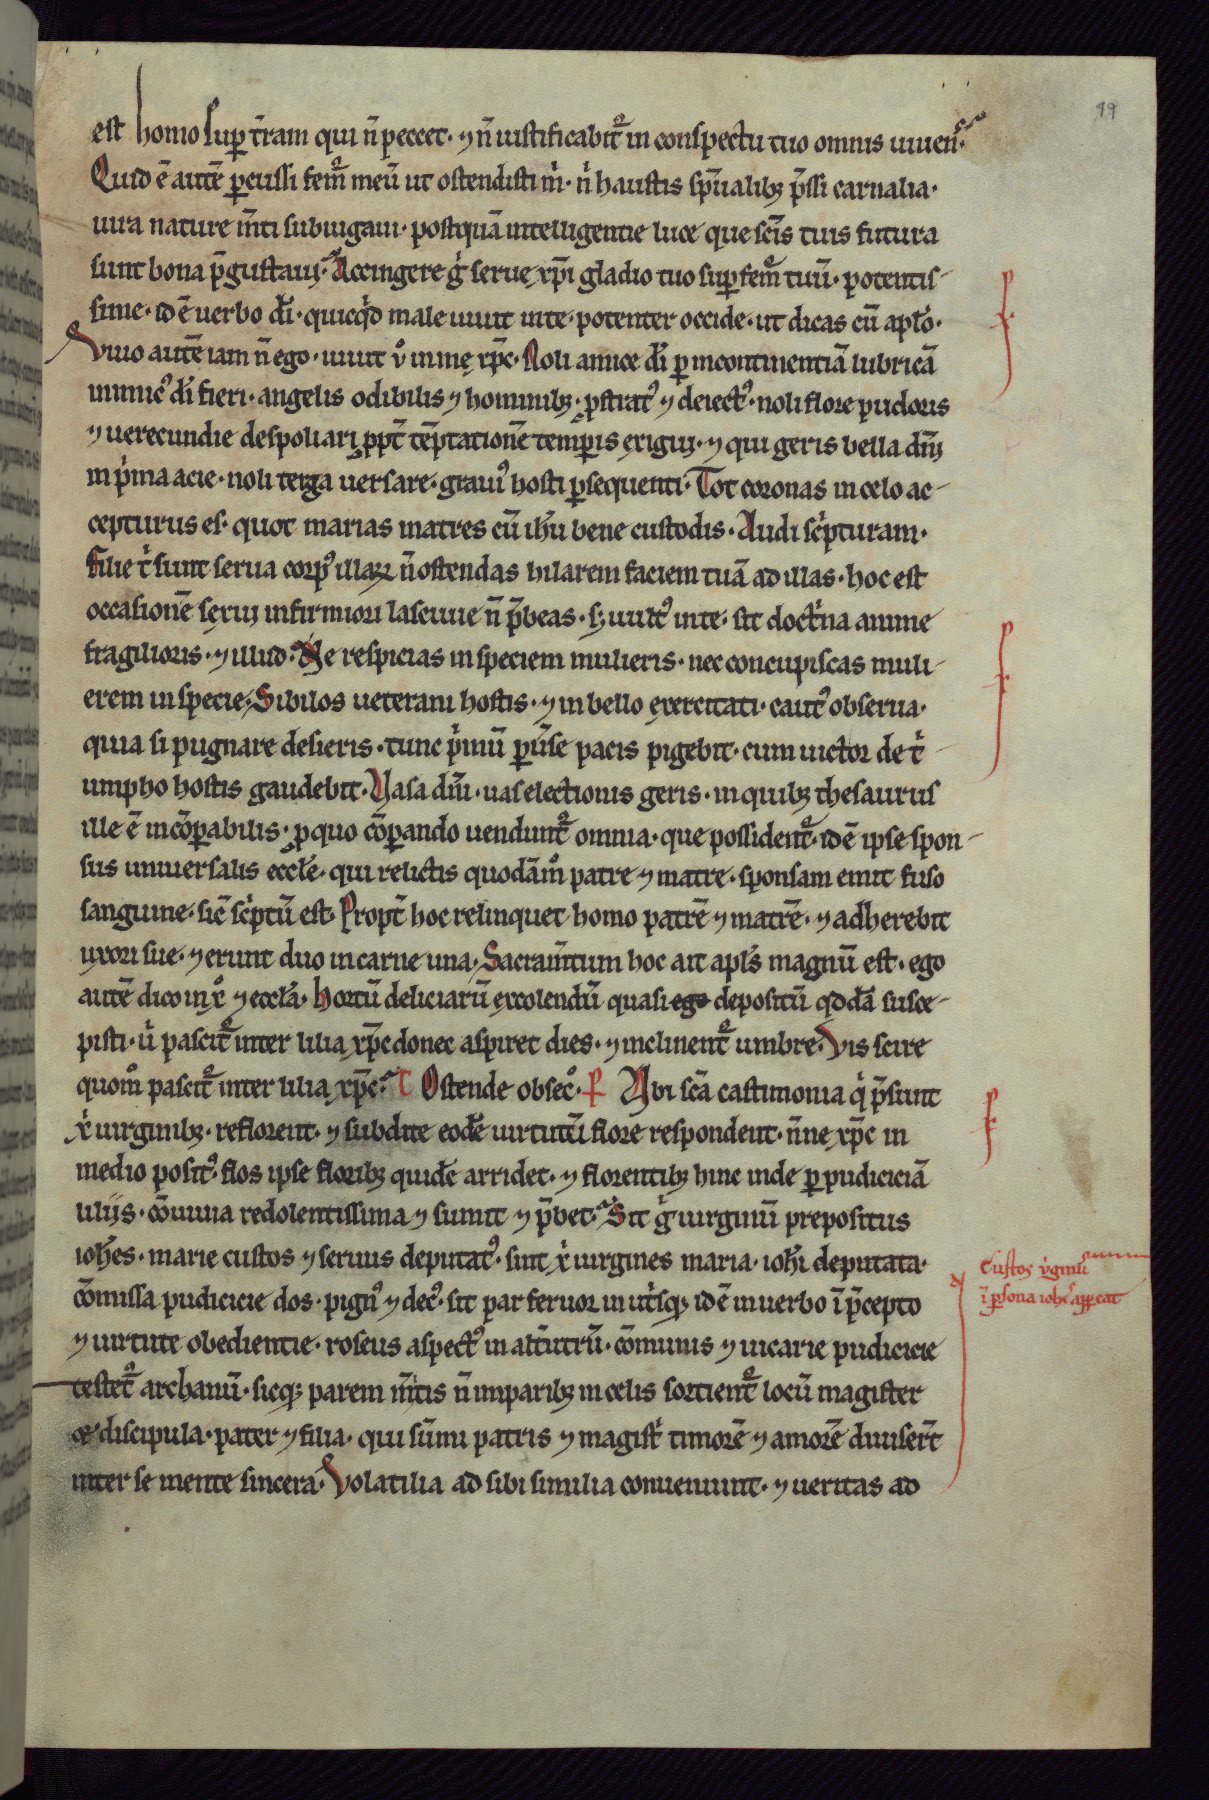 99
est homo sup t̄ram qui n̄ peccet· ⁊ n̄ iustificabit᷑ in conspectu tuo omnis uiuen̄s·
Quid ē autē p̱cussi fem᷑ meū ut ostendisti m̍· n̍ haustis sp̄ualibꝫ p̄ssi carnalia·
iura nature m̄ti subiugaui· postquā intelligentie luce que sc̄is tuis futura
sunt bona p̄gustaui· Accingere g̍ serue xp̄i gladio tuo sup fem᷑ tuū· potentis-
sime· id ē uerbo dī· quicq̍d male uiuit in te· potenter occide· ut dicas cū apl̄o·
Viuo autē iam n̄ ego· uiuit ů in me xp̄c· Noli amice dī ꝑ incontinentiā lubricā
inimicꝰ dī fieri· angelis odibilis ⁊ hominibꝫ· ꝓstratꝰ ⁊ deiectꝰ· noli flore pudoris
⁊ uerecundie despoliari ꝓpt̄ tēptationē temꝑis exigui· ⁊ qui geris bella dn̄i
in p̍ma acie· noli terga uersare· grauiꝰ hosti ꝑsequenti· Tot coronas in celo ac-
cepturus es· quot marias matres cū ih̄u bene custodis· Audi sc̍pturam·
Filie t̍ sunt serua corpꝰ illaꝝ n̄ ostendas hilarem faciem tuā ad illas· hoc est
occasionē serui infirmiori lasciuie n̄ p̄beas· sꝫ uultꝰ in te· sit doct̍na anime
fragilioris· ⁊ illud· Ne respicias in speciem mulieris· nec concupiscas muli-
erem in specie· Sibilos ueterani hostis· ⁊ in bello exercitati· cautꝰ obserua·
quia si pugnare desieris· tunc p̍mū ꝑuse pacis pigebit· cum uictor de t̍-
umpho hostis gaudebit· Vasa dn̄i· uas electionis geris· in quibꝫ thesaurus
ille ē incōꝑabilis· ꝓ quo cōꝑando uendunt᷑ omnia· que possident᷑· id ē ipse spon-
sus uniuersalis eccl̄e· qui relictis quodāmͦ patre ⁊ matre· sponsam emit fuso
sanguine· sic̄ sc̍ptū est· Propt̄ hoc relinquet homo patrē ⁊ matrē· ⁊ adherebit
uxori sue· ⁊ erunt duo in carne una· Sacram̄tum hoc ait apl̄s magnū est· ego
autē dico in xͦ ⁊ eccl̄a· Hortū deliciarū excolendū quasi ego depositū qd̄dā susce-
pisti· u̍ pascit᷑ inter lilia xp̄c donec aspiret dies· ⁊ inclinent᷑ umbre· Vis scire
quomͦ pascit᷑ inter lilia xp̄c· T Ostende obsecͦ· P Vbi sc̄a castimonia q̍ p̄sunt
x̍ uirginibꝫ· reflorent· ⁊ subdite eodē uirtutū flore respondent· n̄ne xp̄c in
medio positꝰ· flos ipse floribꝫ quidē arridet· ⁊ florentibꝫ hinc inde ꝑ pudiciciā
liliis· cōuiuia redolentissima ⁊ sumit ⁊ p̄bet· Sit g̍ uirginū prepositus
ioh̄es· marie custos ⁊ seruus deputatꝰ· sint x̍ uirgines maria· ioh̄i deputata·
cōmissa pudicicie dos· pignꝰ ⁊ decꝰ· sit par feruor in ut̍sqꝫ id ē in uerbo ī p̄cepto
⁊ uirtute obedientie· roseus aspectꝰ in alt̄utrū· cōmunis ⁊ uicarie pudicicie
testet᷑ archanū· sicqꝫ parem m̄tis n̄ imparibꝫ in celis sortient᷑ locū magister
et discipula· pater ⁊ filia· qui sūmi patris ⁊ magist̍ timorē ⁊ amorē diuiser̄t
inter se mente sincera· Volatilia ad sibi similia conueniunt· ⁊ ueritas ad
Custos v̍ginū
ī ꝑsona ioh̄s appeat